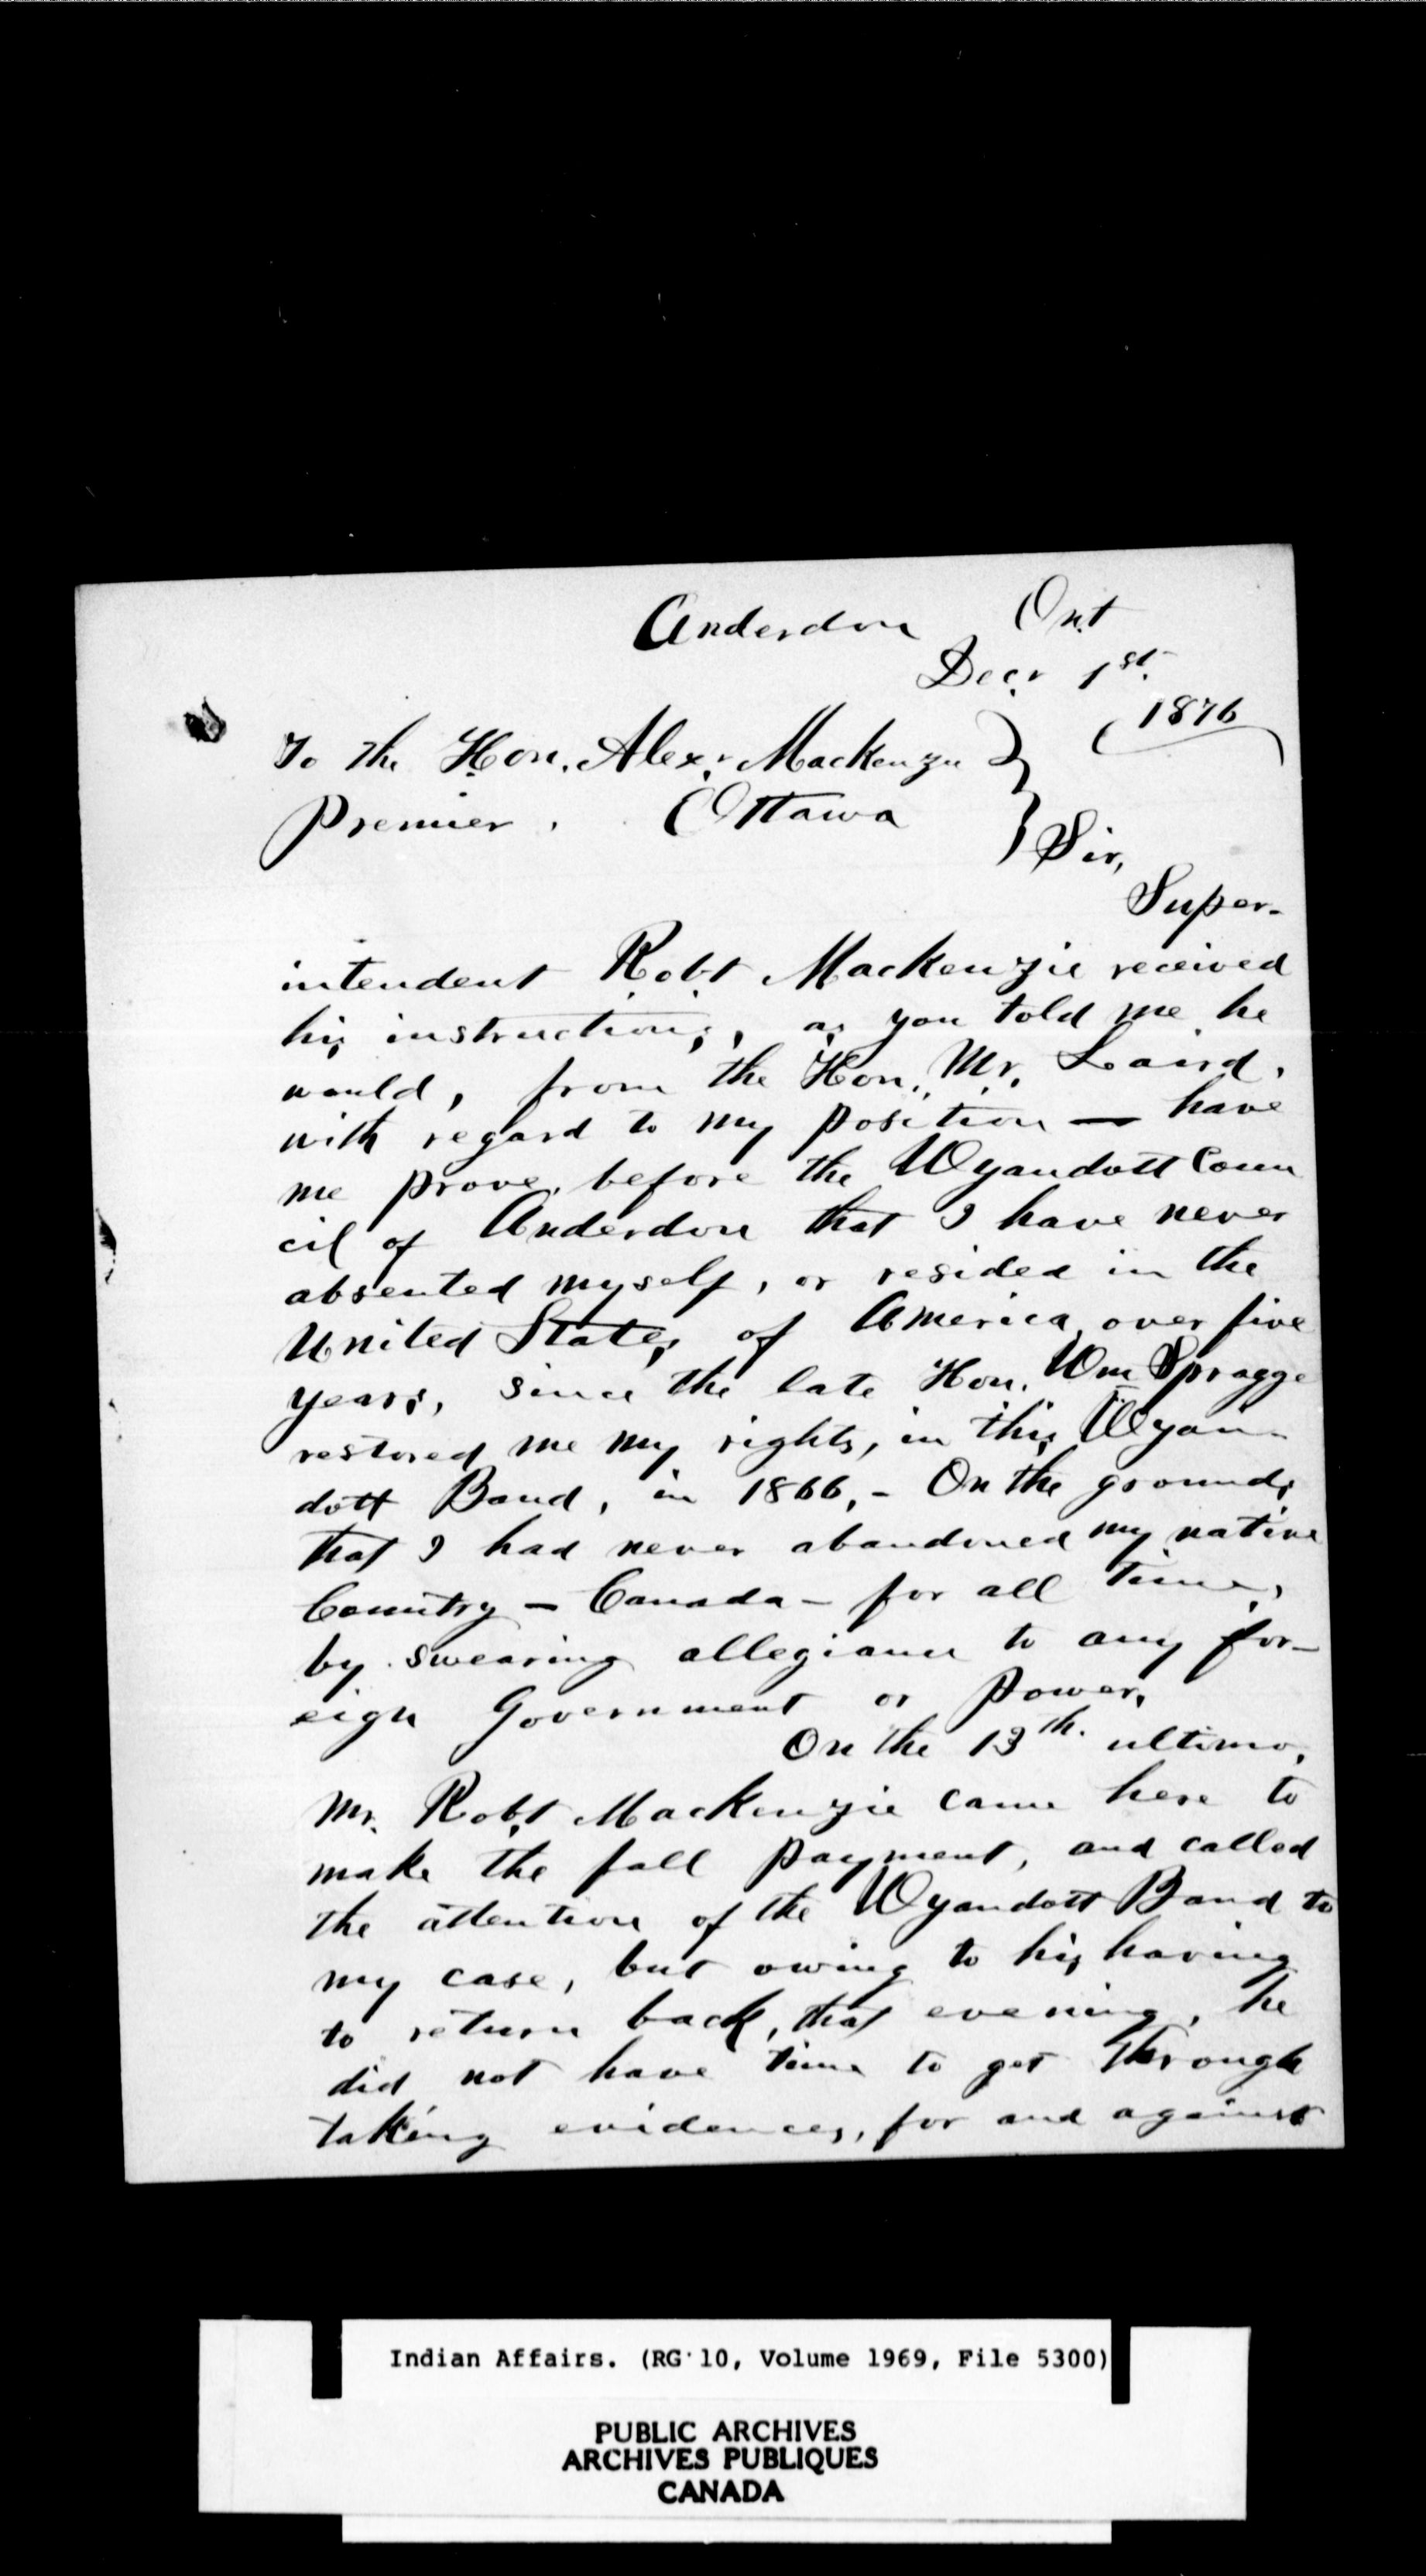 Anderdon Ont
Decr 1st.
1876
To the Hon. Alexr Mackenzie
Premier. Ottawa
Sir,
Super-
intendent Robt Mackenzie received
his instructions, as you told me he
would, from the Hon. Mr. Laird,
with regard to my position — have
me prove, before the Wyandott Coun
cil of Anderdon that I have never
absented myself, or resided in the
United States of America, over five
years, since the late Hon. Wm Spragge
restored me my rights, in this Wyan-
dott Band, in 1866, - On the grounds
that I had never abandoned my native
Country - Canada - for all time,
by swearing allegiance to any for-
eign Government or power,
On the 13th. ultimo,
Mr. Robt Mackenzie came here to
make the fall payment, and called
the attention of the Wyandott Band to
my case, but owing to his having
to return back, that evening, he
did not have time to get through
taking evidences, for and against
Indian Affairs. (RG 10, Volume 1969, File 5300)
PUBLIC ARCHIVES
ARCHIVES PUBLIQUES
CANADA